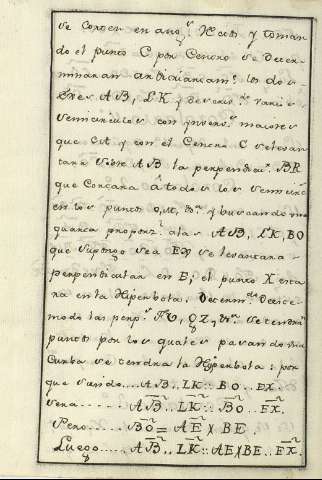 se corten en ang.s rectos y toman
do el punto C por Centro se deter
minaran arbitrariam.te los dos
Exes AB, LK y descriv.n varios
semicirculos con
que CA y con el Centro C se levan
tara sobre AB la perpendicu.r BR
que Cortara â todos los semicirc
en los puntos O, M, &.a y buscando una
quarta proporz.l a las AB, LK, BO
que supongo sea EX se levantara
perpendicular en E; el punto X esta
ra en la Hiperbola. Determ.das de este
modo las perp.s TV, QZ, &.a se tendrán
puntos por los quales pasando una
Curba se tendra la Hiperbola: por
que siendo.... AB.. LK:: BO.. EX.
sera ...... AB.. LK:: BO.. EX.
Pero.... BO = AE X BE.
Luego.... AB.. LK:: AE X BE.. EX.